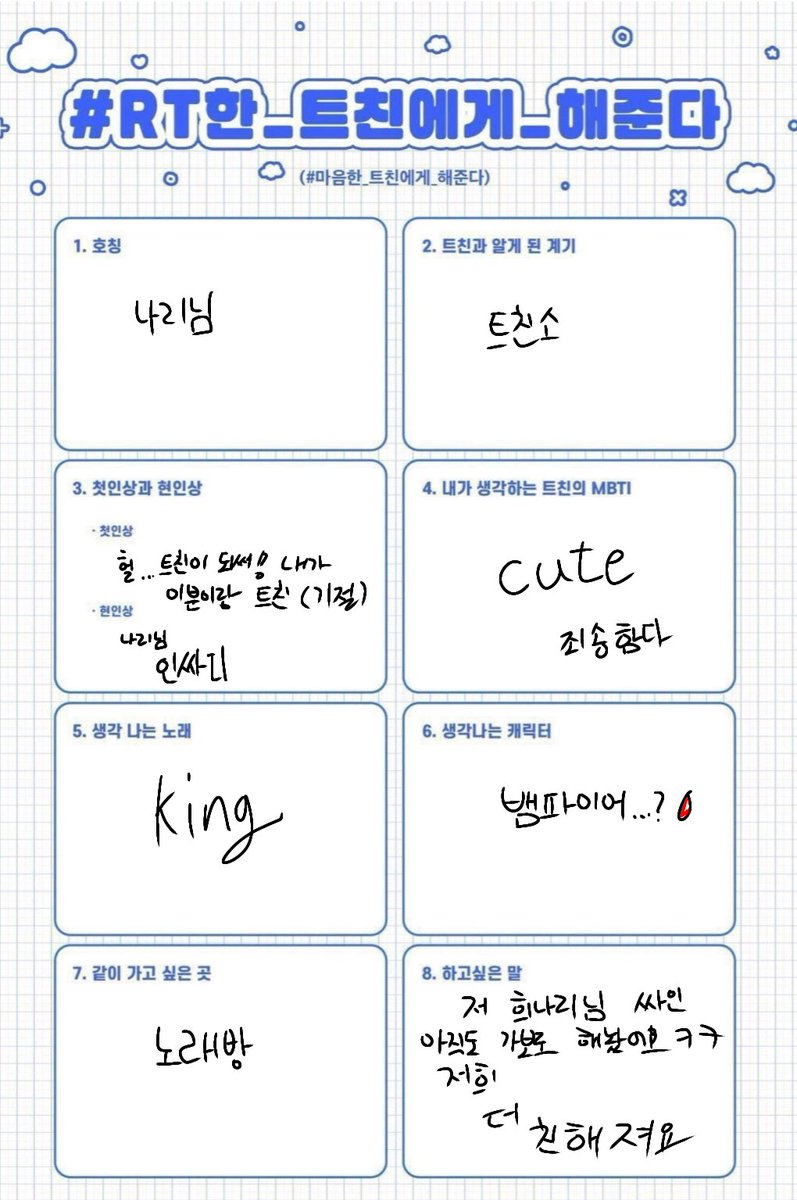 #RT한_트친에게_해준다
(#마음한_트친에게_해준다)
1. 호칭
나리님
2. 트친과 알게 된 계기
트친소
3. 첫인상과 현인상
· 첫인상
헐...트친이 돼써!! 내가
이분이랑 트친 (기절)
· 현인상
나리님
인싸디
4. 내가 생각하는 트친의 MBTI
cute
죄송함다
5. 생각 나는 노래
king
6. 생각나는 캐릭터
뱀파이어...?
7. 같이 가고 싶은 곳
노래방
8. 하고싶은 말
저 희나리님 싸인
아직도 가보로 해놨어요 ㅋㅋ
저희
더
친해져요